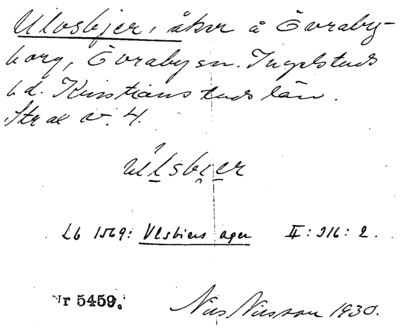 Ulvsbjer, åker å Övraby-
borg, Övraby sn. Ingelstads
hd. Kristianstads län.
Str ax v. 4.
ulsbjer
Lb 1569: Vlsbiers ager II: 316: 2.
Nr 5459.
Nils Nilsson 1930.